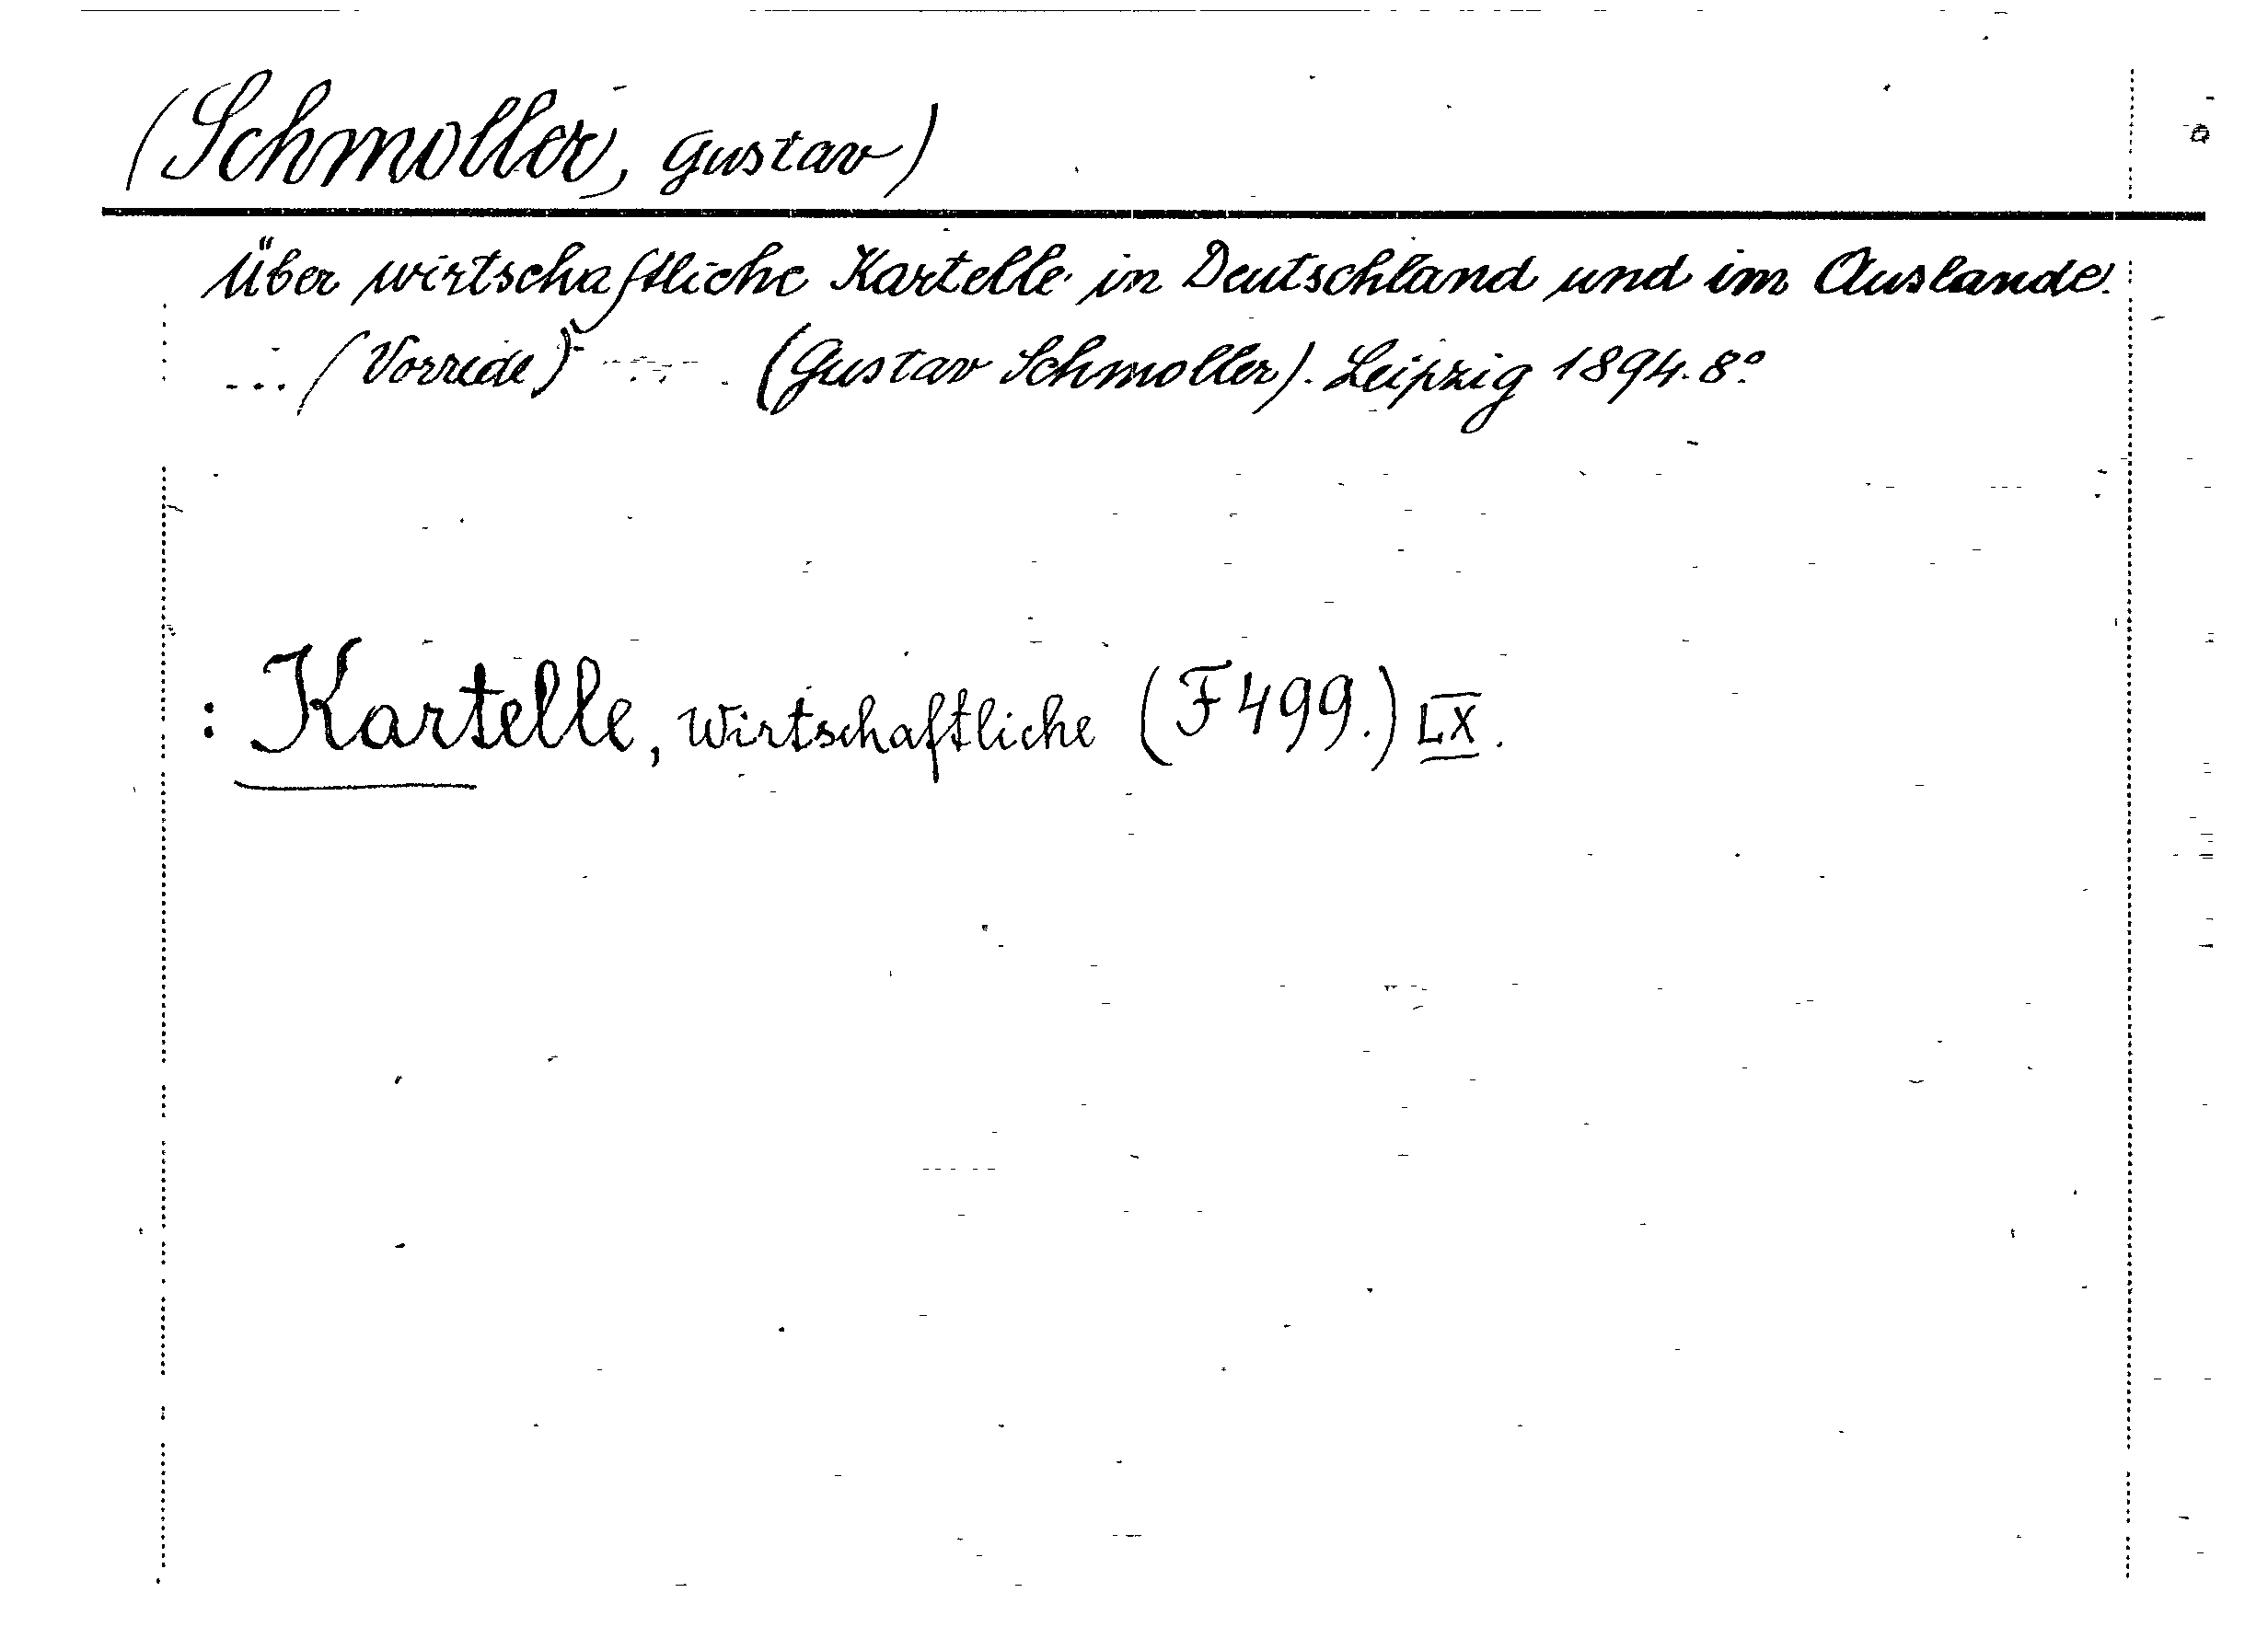 (Schmoller, Gustav)
Über wirtschaftliche Kartelle in Deutschland und im Auslande.
... (Vorrede) (Gustav Schmoller). Leipzig 1894. 8°.
: Kartelle, wirtschaftliche (F 499.) LX.